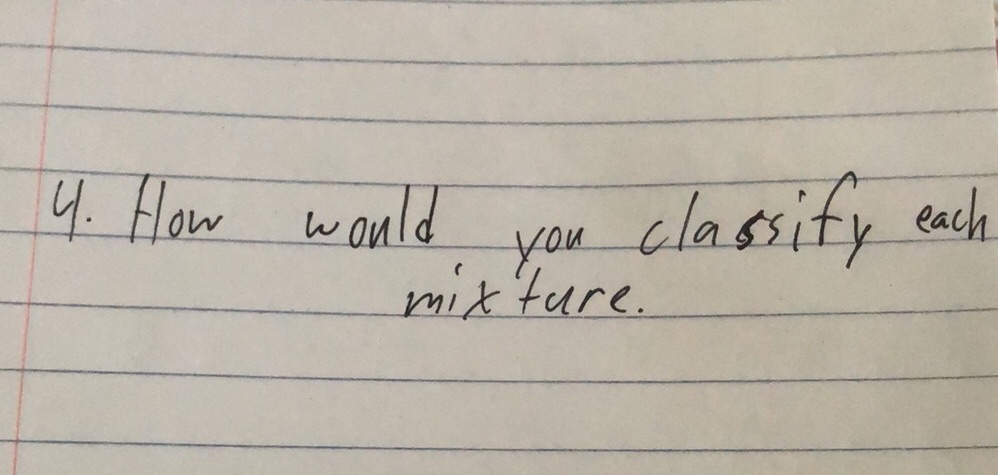 4. How would you classify each
mixture.